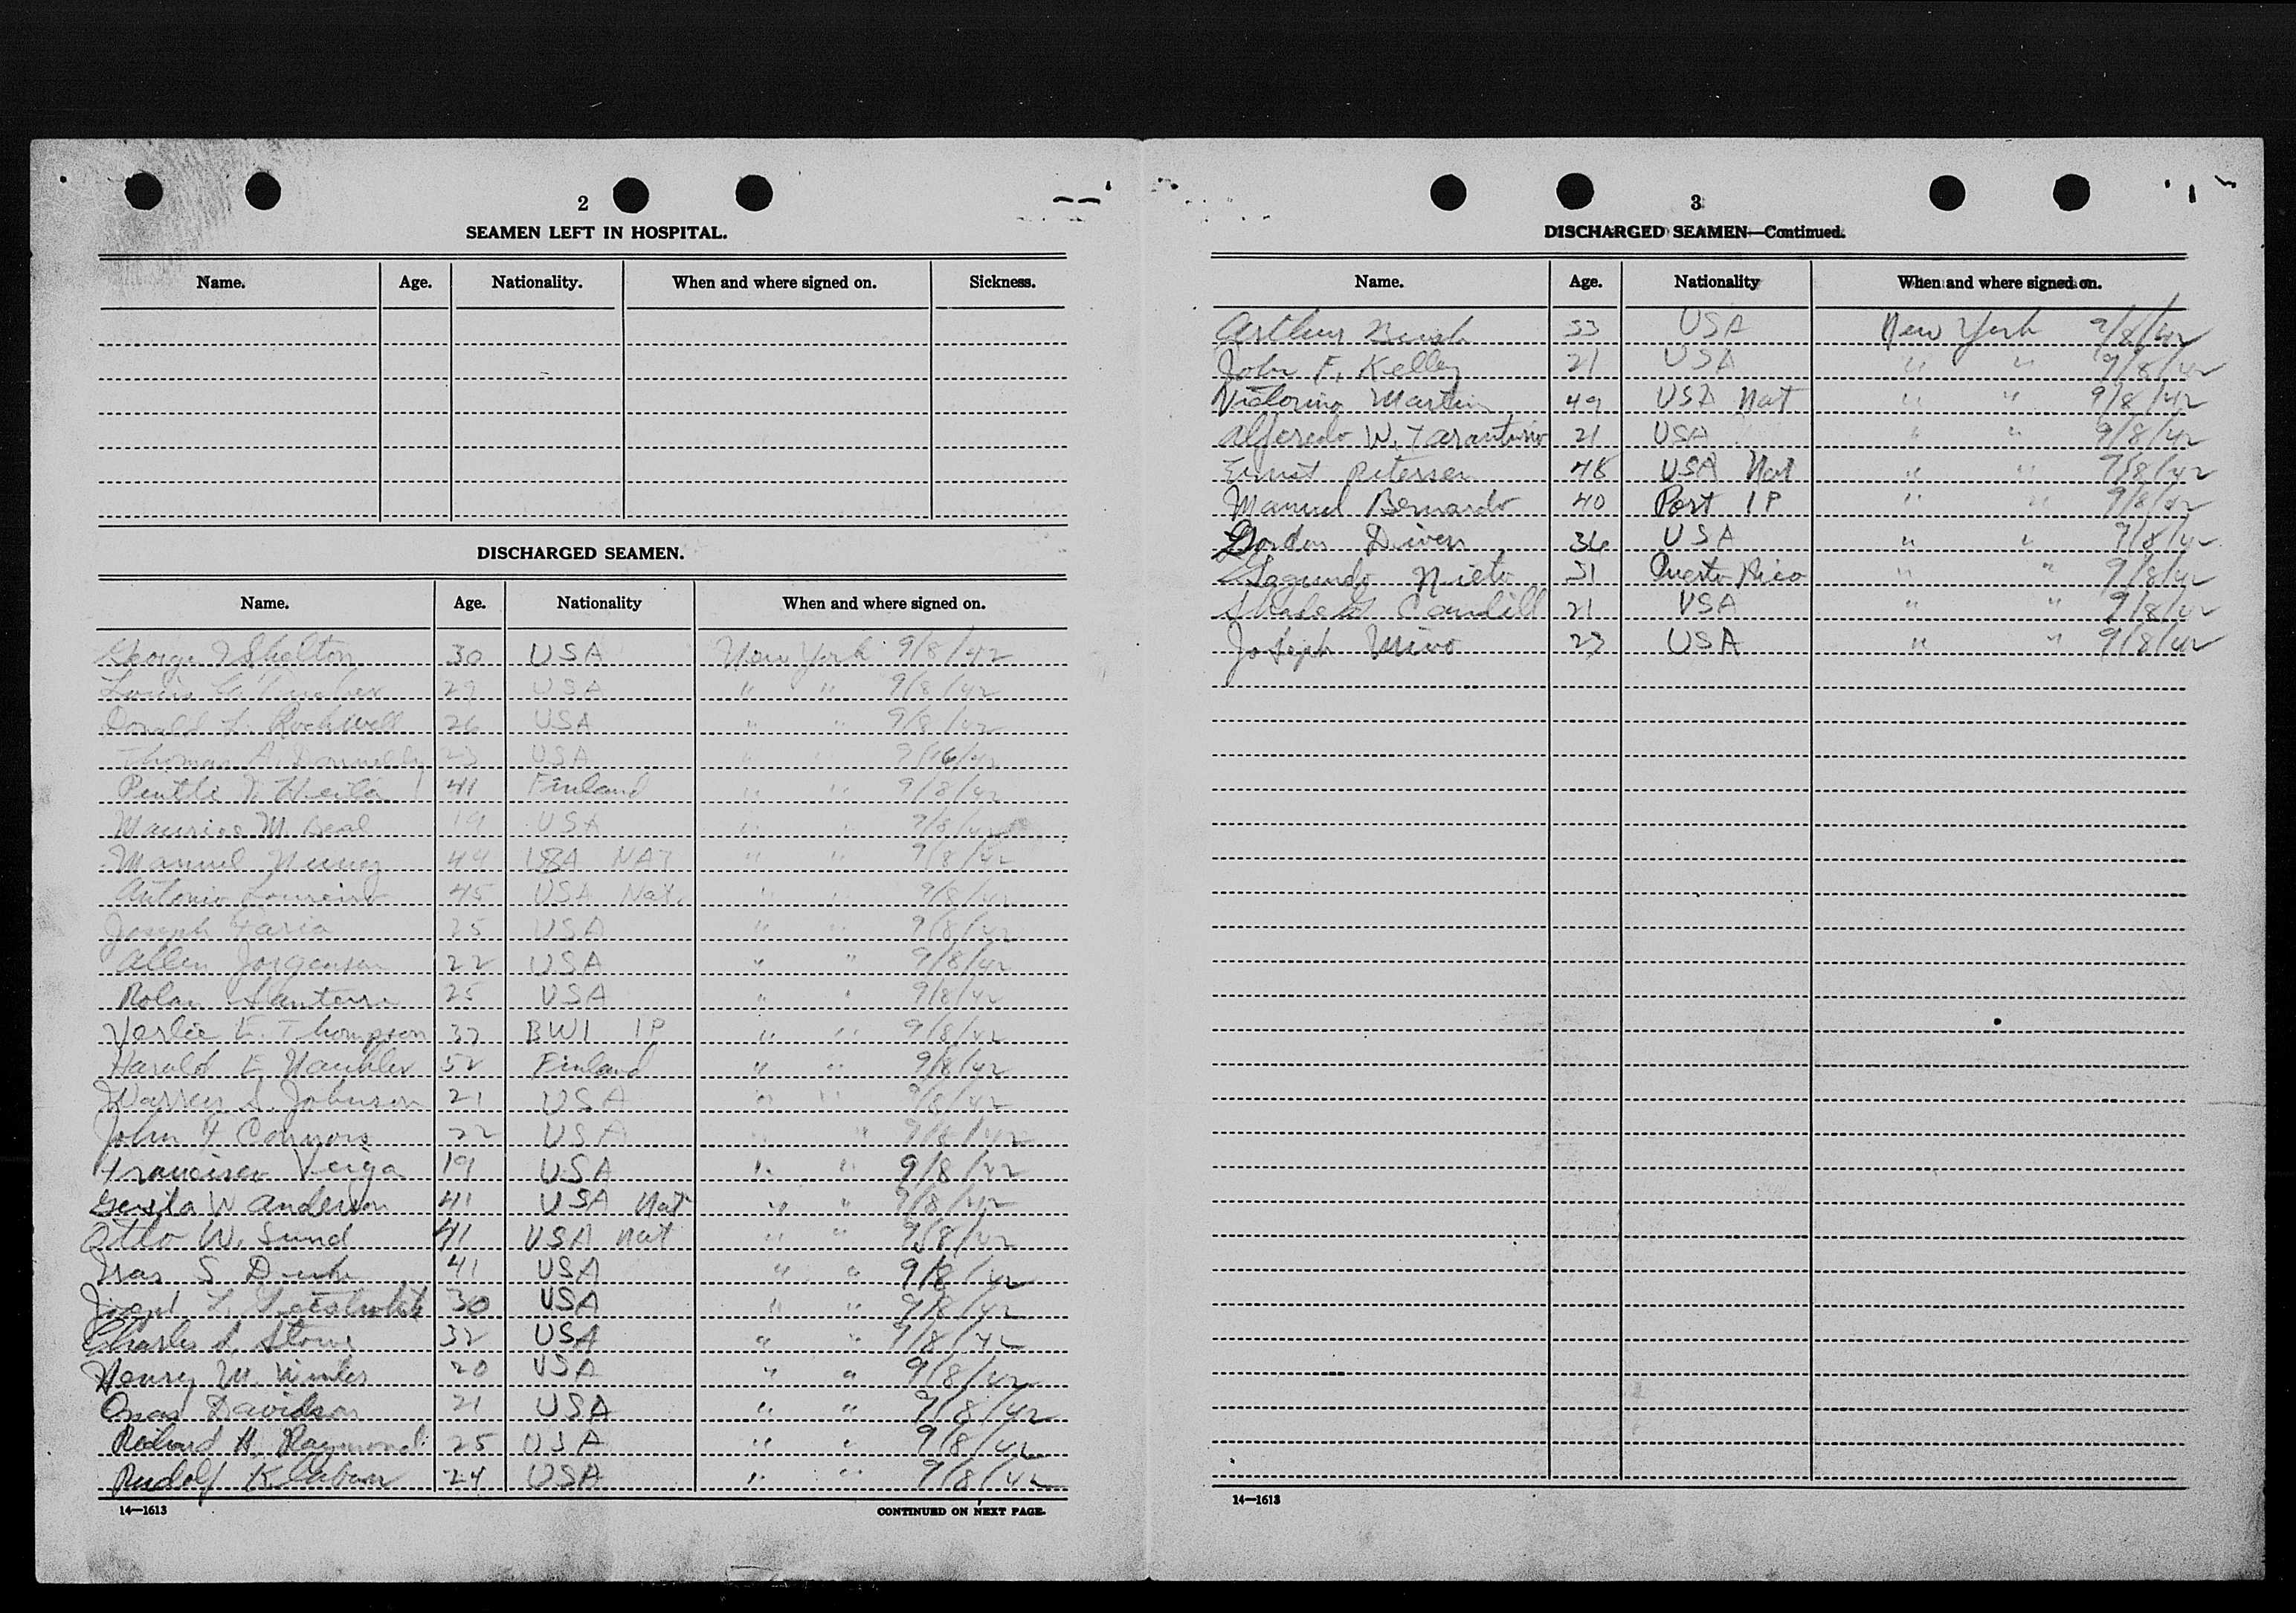 2
SEAMEN LEFT IN HOSPITAL.
Name. Age. Nationality. When and where signed on. Sickness.
DISCHARGED SEAMEN.
Name. Age. Nationality When and where signed on.
George Shelton 30 USA New York 9/8/42
Louis 29 USA " " 9/8/42
Donald L. Rockwell 26 USA " " 9/8/42
Thomas A. Donnelly 23 USA " " 9/16/42
Pentti Heila 41 Finland " " 9/8/42
Maurice M. Beal 19 USA " " 9/8/42
Manuel Nunez 44 USA NAT " " 9/8/42
Antonio Loureiro 45 USA Nat. " " 9/8/42
Joseph Faria 25 USA " " 9/8/42
Allen Jorgensen 22 USA " " 9/8/42
Rolan 25 USA " " 9/8/42
Verlie E. Thompson 37 BWI IP " " 9/8/42
Harald E 52 Finland " " 9/8/42
Warren S. Johnson 21 USA " " 9/8/42
John F Connors 22 USA " " 9/8/42
Francisco Veiga 19 USA " " 9/8/42
Gusta W Anderson 41 USA Nat " " 9/8/42
Otto W. Sund 41 USA Nat " " 9/8/42
S 41 USA " " 9/8/42
30 USA " " 9/8/42
Charles L. Stone 32 USA " " 9/8/42
Henry M. 20 USA " " 9/8/42
Davidson 21 USA " " 9/8/42
Richard H. Raymond 25 USA " " 9/8/42
Rudolf 24 USA " " 9/8/42
14—1613 CONTINUED ON NEXT PAGE.
3
DISCHARGED SEAMEN—Continued.
Name. Age. Nationality When and where signed on.
Arthur 53 USA New York 9/8/42
John F. Kelley 21 USA " " 9/8/42
Victorino Martin 49 USA Nat " " 9/8/42
Alfredo W. Tarantino 21 USA " " 9/8/42
Ernst Petersen 48 USA Nat " " 9/8/42
Manuel Bernardo 40 Port IP " " 9/8/42
Gordon Diven 36 USA " " 9/8/42
Nieto 31 Puerto Rico " " 9/8/42
Caudill 21 USA " " 9/8/42
Joseph Mino 23 USA " " 9/8/42
14—1613